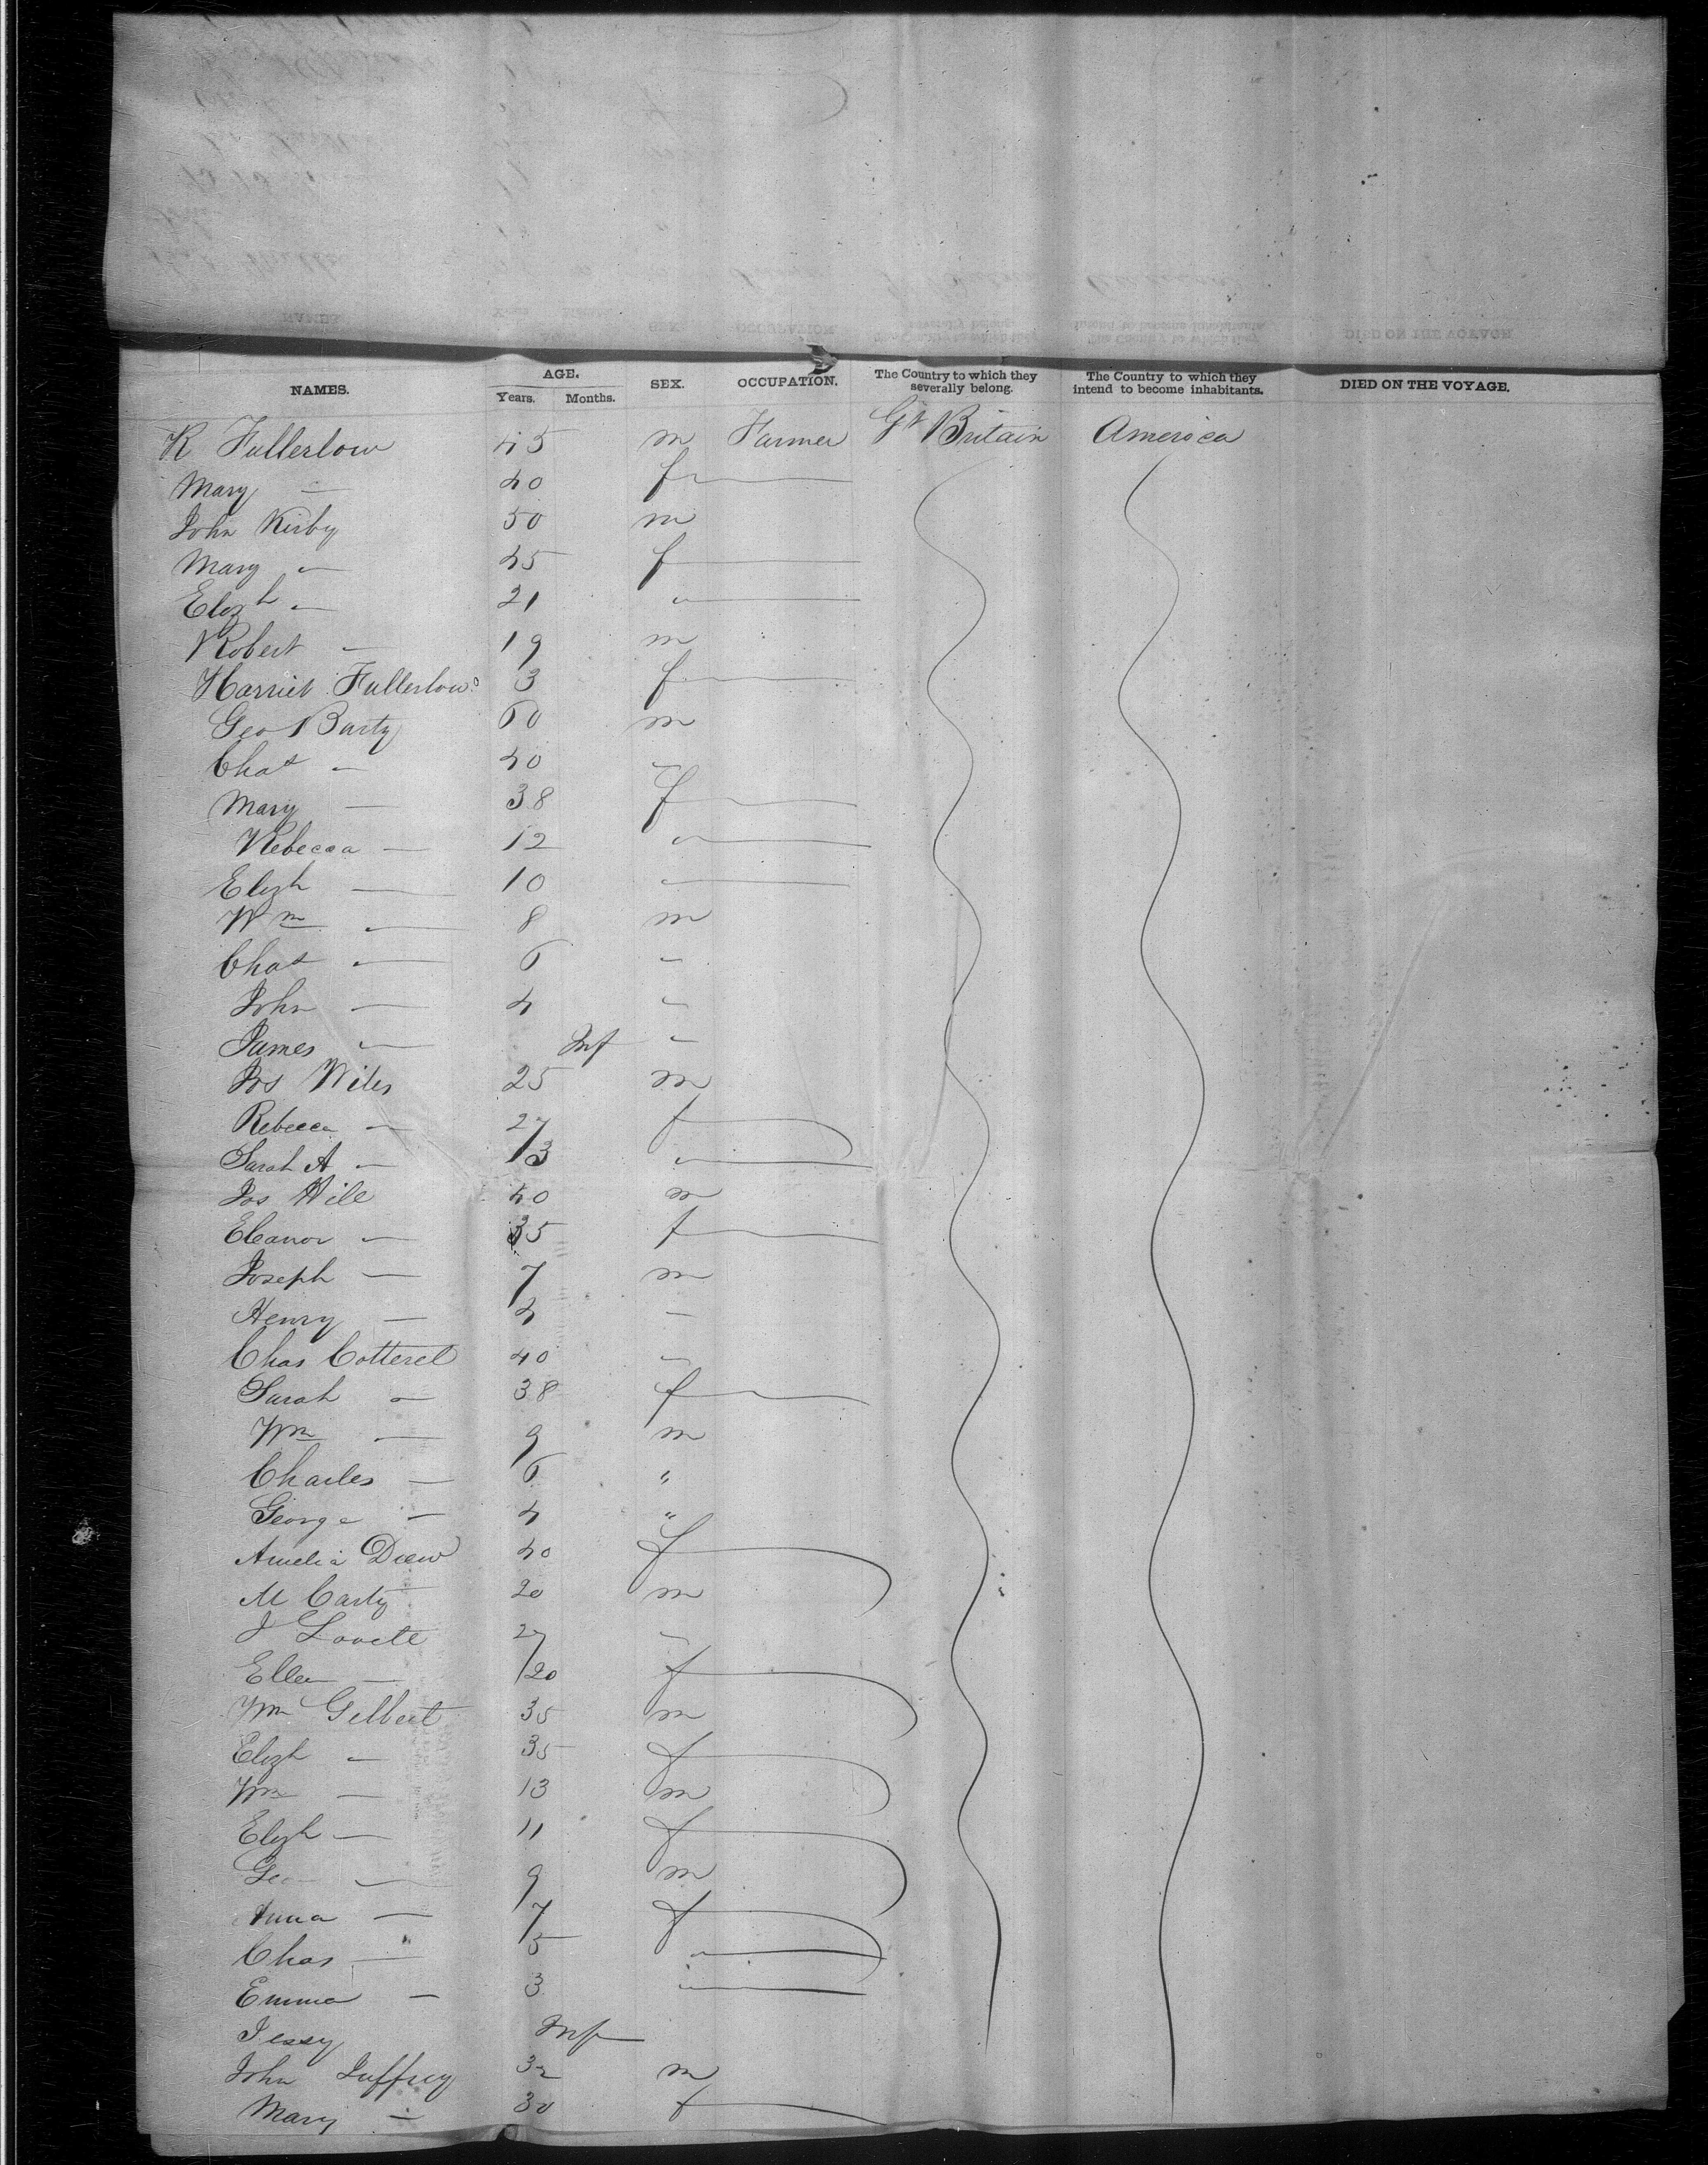 NAMES. AGE. Years. Months. SEX. OCCUPATION. The Country to which they severally belong. The Country to which they intend to become inhabitants. DIED ON THE VOYAGE.
R Fullerlow 45 m Farmer Gt Britain America
Mary — 40 f
John Kirby 50 m
Mary — 45 f
Elizh — 21 "
Robert — 19 m
Harriet Fullerlow 3 f
Geo Barty 60 m
Chas — 40 "
Mary — 38 f
Rebecca — 12 "
Elizh — 10 "
Wm — 8 m
Chas — 6 "
John — 4 "
James — Inf "
Jos Wiles 25 m
Rebecca — 27 f
Sarah A — 13 "
Jos Hill 40 m
Eleanor — 35 f
Joseph — 7 m
Henry — 4 —
Chas Cotterel 40 "
Sarah — 38 f
Wm — 9 m
Charles — 6 "
George — 4 "
Amelia Drew 40 f
M Carty 20 m
J Lovell 27 "
Ellen — 20 f
Wm Gilbert 35 m
Elizh — 35 f
Wm — 13 m
Elizh — 11 f
Geo — 9 m
Anna — 7 f
Chas — 5 "
Emma — 3 "
Jessy Inf
John Juffrey 32 m
Mary — 30 f